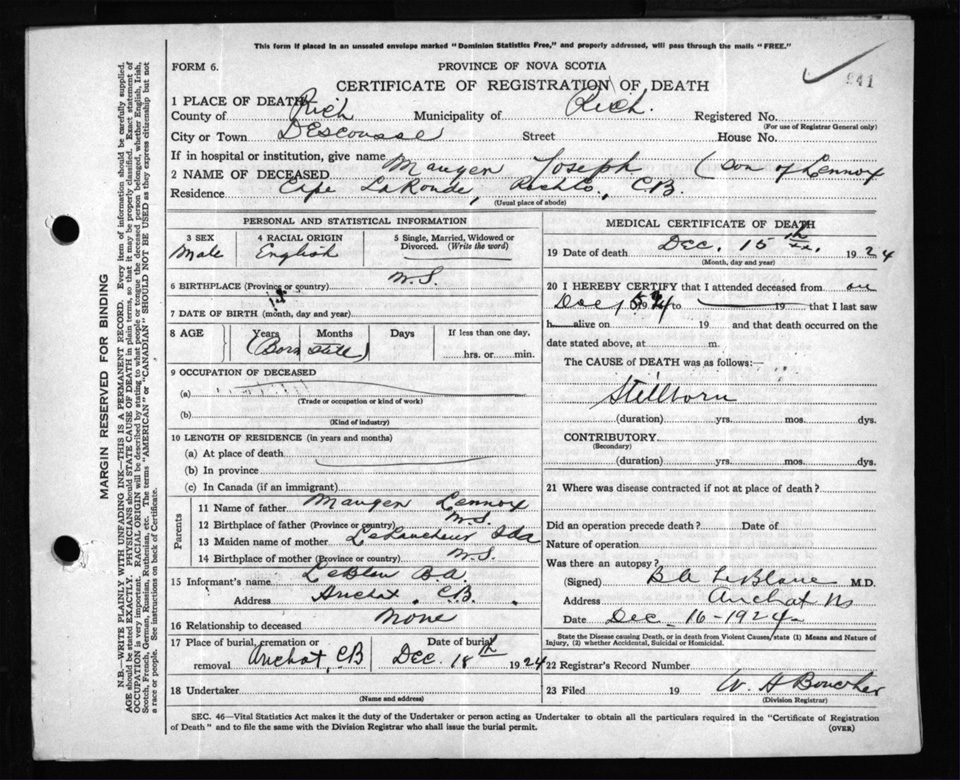 This form if placed in an unsealed envelope marked "Dominion Statistics Free," and properly addressed, will pass through the mails "FREE."
FORM 6.
PROVINCE OF NOVA SCOTIA
CERTIFICATE OF REGISTRATION OF DEATH
941
1 PLACE OF DEATH
County of Rich Municipality of Rich. Registered No.
(For use of Registrar General only)
City or Town DEscousse Street House No.
If in hospital or institution, give name
2 NAME OF DECEASED Mauger Joseph (son of Lennox
Residence Cape LaRonde, Richto., C.B.
(Usual place of abode)
PERSONAL AND STATISTICAL INFORMATION
3 SEX Male
4 RACIAL ORIGIN English
5 Single, Married, Widowed or Divorced. (Write the word)
6 BIRTHPLACE (Province or country) N.S.
7 DATE OF BIRTH (month, day and year)
8 AGE Years Months Days If less than one day, hrs. or min.
(Born
9 OCCUPATION OF DECEASED
(a)
(Trade or occupation or kind of work)
(b)
(Kind of industry)
10 LENGTH OF RESIDENCE (in years and months)
(a) At place of death
(b) In province
(c) In Canada (if an immigrant)
Parents
11 Name of father Mauger Lennox
12 Birthplace of father (Province or country) N.S.
13 Maiden name of mother Ida
14 Birthplace of mother (Province or country) N.S.
15 Informant's name LeBlanc B.A.
Address Arichat, C.B.
16 Relationship to deceased None
17 Place of burial, cremation or removal Arichat, CB Date of burial Dec. 18th 1924
18 Undertaker
(Name and address)
MEDICAL CERTIFICATE OF DEATH
19 Date of death Dec. 15th 1924
(Month, day and year)
20 I HEREBY CERTIFY that I attended deceased from on
Dec 15 19 24 to 19 that I last saw
h alive on 19 and that death occurred on the
date stated above, at m.
The CAUSE of DEATH was as follows:
Stillborn
(duration) yrs. mos. dys.
CONTRIBUTORY
(Secondary)
(duration) yrs. mos. dys.
21 Where was disease contracted if not at place of death?
Did an operation precede death? Date of
Nature of operation
Was there an autopsy?
(Signed) B A LeBlanc M.D.
Address Arichat NS
Date Dec 16-1924
State the Disease causing Death, or in death from Violent Causes, state (1) Means and Nature of Injury, (2) whether Accidental, Suicidal or Homicidal.
22 Registrar's Record Number
23 Filed 19 W H Boucher
(Division Registrar)
SEC. 46—Vital Statistics Act makes it the duty of the Undertaker or person acting as Undertaker to obtain all the particulars required in the "Certificate of Registration of Death" and to file the same with the Division Registrar who shall issue the burial permit. (OVER)
MARGIN RESERVED FOR BINDING
N.B.—WRITE PLAINLY WITH UNFADING INK—THIS IS A PERMANENT RECORD. Every item of information should be carefully supplied.
AGE should be stated EXACTLY. PHYSICIANS should STATE CAUSE OF DEATH in plain terms, so that it may be properly classified. Exact statement of
OCCUPATION is very important. RACIAL ORIGIN will be described by stating to what people or tongue the deceased person belonged, whether English, Irish,
Scotch, French, German, Russian, Ruthenian, etc. The terms "AMERICAN" or "CANADIAN" SHOULD NOT BE USED as they express citizenship but not
a race or people. See instructions on back of Certificate.